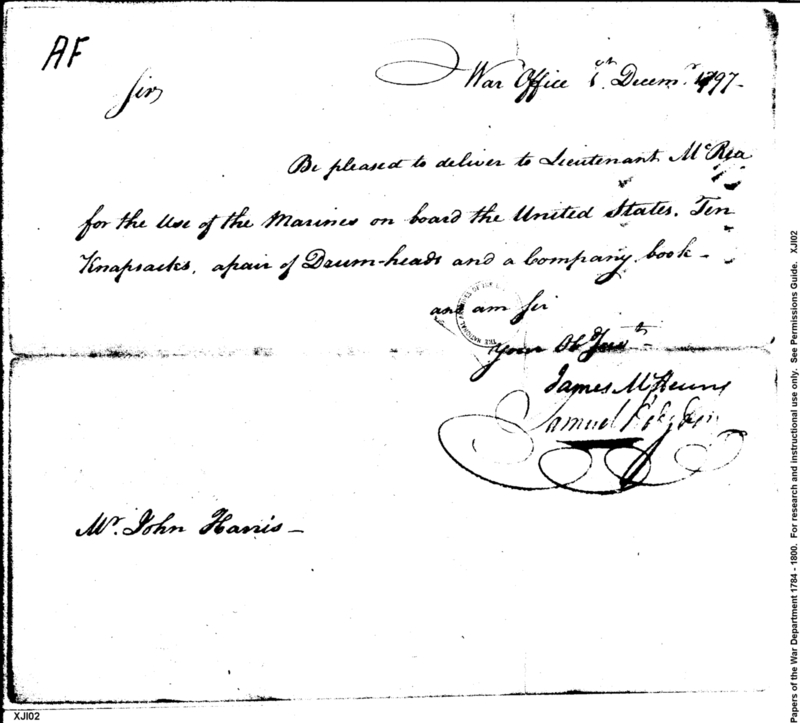 AF
War Office 1st Decemr. 1797-
Sir
Be pleased to deliver to Lieutenant McRea
for the Use of the Marines on board the United States. Ten
Knapsacks, a pair of Drum-heads and a Company book -
and am Sir
Your Ob Servt
James McHenry
Samuel Hodgdon
Mr. John Harris -
XJI02
Papers of the War Department 1784 - 1800. For research and instructional use only. See Permissions Guide. XJI02